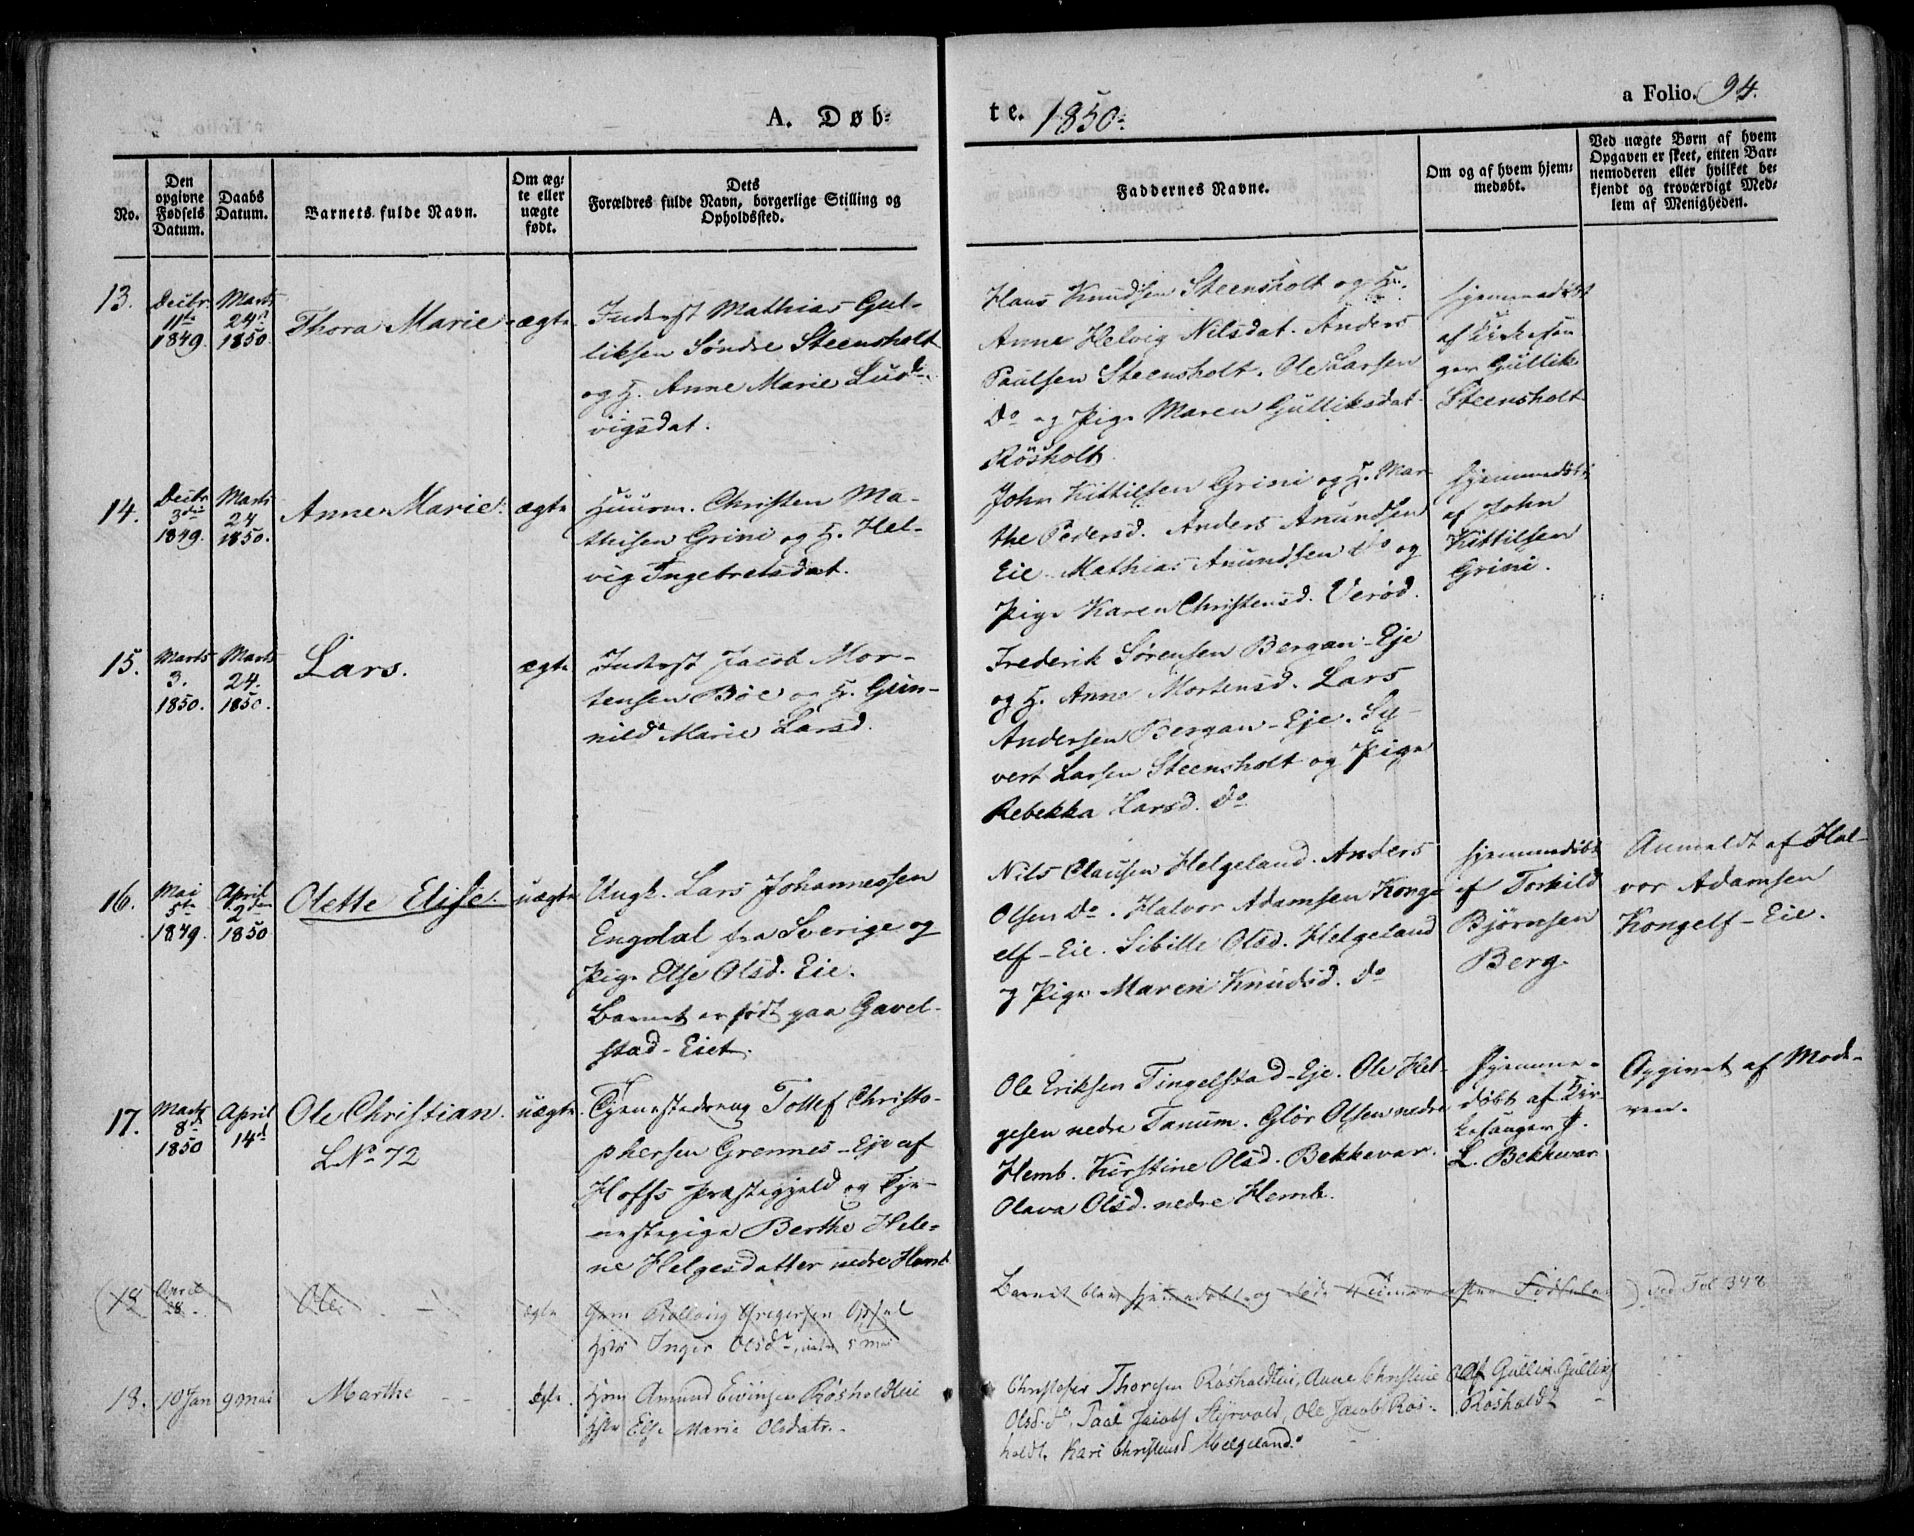 A. Døb-
te. 1850.
a Folio. 94.
No.
Den opgivne Fødsels Datum.
Daabs Datum.
Barnets fulde Navn.
Om ægte eller uægte født.
Dets Forældres fulde Navn, borgerlige Stilling og Opholdssted.
Faddernes Navne.
Om og af hvem hjemmedøbt.
Ved uægte Børn af hvem Opgaven er skeet, enten Barnemoderen eller hvilket bekjendt og troværdigt Medlem af Menigheden.
13.
Decbr
11te
1849.
Marts
24de
1850.
Thora Marie
ægte
Inderst Mathias Gul-
liksen Søndre Steensholt
og H. Anne Marie Lud-
vigsdat.
Hans Knudsen Steensholt og H.
Anne Helvig Nilsdat. Anders
Paulsen Steensholt. Ole Larsen
Do og Pige Maren Gulliksdat
Røsholt
hjemmedøbt
af Kirkesan
ger Gullik
Steensholt
14.
Decbr
3die
1849.
Marts
24
1850.
Anne Marie
ægte
Huusm. Christen Ma-
thisen Grini og H. Hel-
vig Ingebretsdat.
John Kittilsen Grini og H. Mar
the Pedersd. Anders Anundsen
Eie. Mathias Anundsen Do og
Pige Karen Christensd. Verød.
hjemmedøbt
af John
Kittilsen
Grini.
15.
Marts
3.
1850.
Marts
24.
1850.
Lars.
ægte
Inderst Jacob Mor-
tensen Böe og H. Gun-
nild Marie Larsd.
Frederik Sørensen Bergan-Eje
og H. Anne Mortensd. Lars
Andersen Bergan-Eje. Sy-
vert Larsen Steensholt og Pige
Rebekka Larsd. Do
16.
Mai
5te
1849.
April
2den
1850
Olette Elise.
uægte
Ungk. Lars Johannessen
Engdal fra Sverige og
Pige Else Olsd. Eie.
Barnet er født paa Gavel-
stad-Eiet.
Nils Clausen Helgeland. Anders
Olsen Do. Halvor Adamsen Konge
elf-Eie. Sibille Olsd. Helgeland
og Pige Maren Knudsd. Do
hjemmedøbt
af Torkild
Bjørnsen
Berg.
Anmeldt af Hal-
vor Adamsen
Kongelf-Eie.
17.
Marts
8de
1850
April
14d
Ole Christian.
L No 72
uægte
Tjenestedreng Tollef Christo-
phersen Grennes-Eje af
Hoffs Præstegjeld og Tje-
nestepige Berthe Hele-
ne Helgesdatter nedre Hemb
Ole Eriksen Tingelstad-Eje. Ole Hel-
gesen nedre Tanum. Glör Olsen nedre
Hemb. Kirstine Olsd. Bekkevar.
Olava Olsd. nedre Hemb.
Hjemme-
døbt af Kir
kesanger J.
L. Bekkevar
Opgivet af Mode-
ren.
18
April
28.
Ole
ægte
Rollaug Gregersen Opsal
Hstr Inger Olsdr, 5 mai
Barnet blev hjemmedøbt og døde efter Fødselen
vid Fol 348
18.
10 Jan
9 mai
Marthe
ægte
Hsm Amund Evensen Røsholdteie
Hstr Else Marie Olsdatr.
Christofer Thorsen Røsholdteie, Anne Christine
Olsd. do, Paal Jacobs Styrvold, Ole Jacob Røs-
holdt. Kari Christensd Melgeland.
Af Gullik Gulliks
Røsholdt